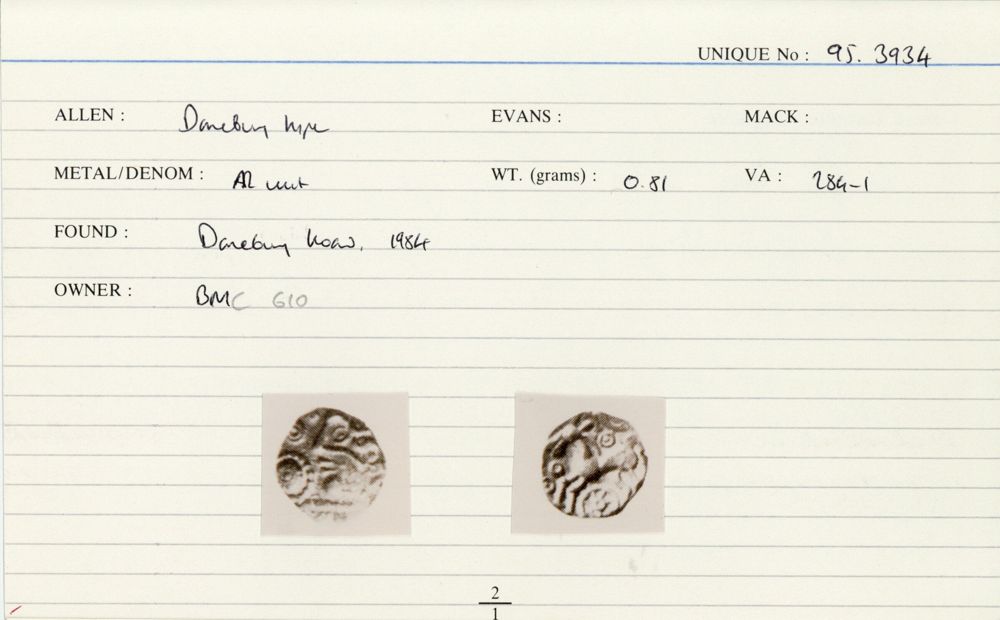 UNIQUE No : 95. 3934
ALLEN : Danebury type EVANS : MACK :
METAL/DENOM : AR unit WT. (grams) : 0.81 VA : 284-1
FOUND : Danebury hoard, 1984
OWNER : BMC 610
2
1